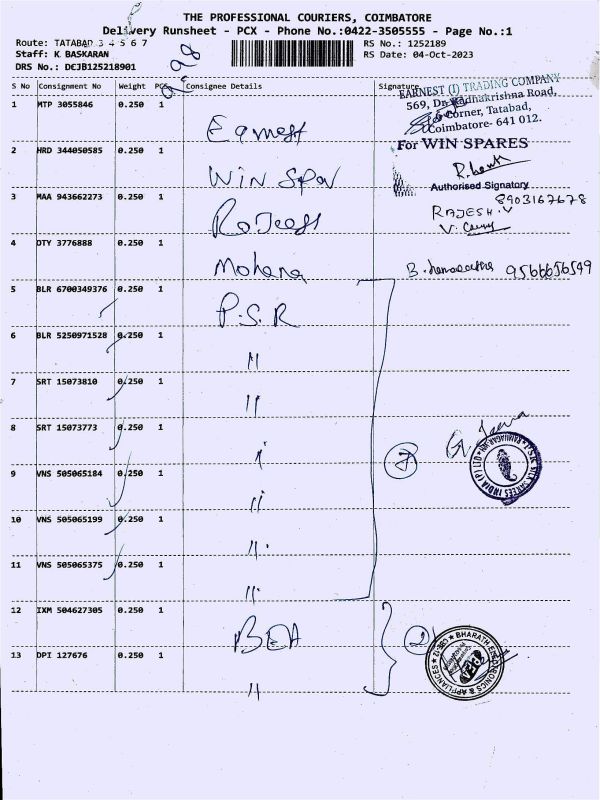 THE PROFESSIONAL COURIERS, COIMBATORE
Delivery Runsheet - PCX - Phone No.:0422-3505555 - Page No.:1
Route: TATABAD 3 4 5 6 7
Staff: K BASKARAN
DRS No.: DCJB125218901
RS No.: 1252189
RS Date: 04-Oct-2023
S No Consignment No Weight PCS Consignee Details Signature
EARNEST (I) TRADING COMPANY
569, Dr. Radhakrishna Road,
Corner, Tatabad,
Coimbatore- 641 012.
1 MTP 3055846 0.250 1 Earnest
For WIN SPARES
2 HRD 344050585 0.250 1 WIN Spar
Authorised Signatory
3 MAA 943662273 0.250 1 Rajesh
8903167678
RAJESH.V
4 OTY 3776888 0.250 1 Mohana
9566656549
5 BLR 6700349376 0.250 1 P.S.R
6 BLR 5250971528 0.250 1 "
7 SRT 15073810 0.250 1 "
8 SRT 15073773 0.250 1 "
7
PSR SILK SAREES INDIA (P) LTD
9 VNS 505065184 0.250 1 "
10 VNS 505065199 0.250 1 "
11 VNS 505065375 0.250 1 "
12 IXM 504627305 0.250 1 BEA
2
BHARATH ELECTRONICS & APPLIANCES
13 DPI 127676 0.250 1 "